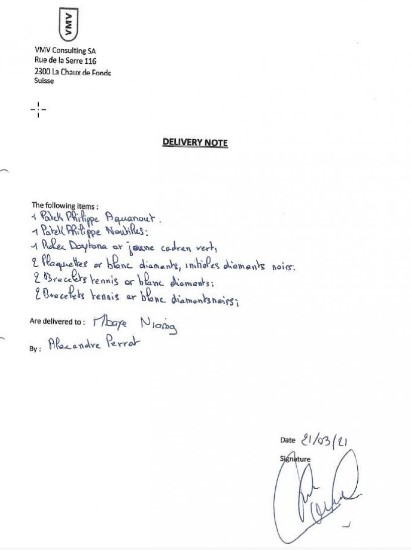 VMV
VMV Consulting SA
Rue de la Serre 116
2300 La Chaux de Fonds
Suisse
DELIVERY NOTE
The following items :
1 Patek Philippe Aquanaut.
1 Patek Philippe Nautilus;
1 Rolex Daytona or jaune cadran vert,
2 Plaquettes or blanc diamants, initiales diamants noirs.
2 Bracelets tennis or blanc diamants;
2 Bracelets tennis or blanc diamants noirs;
Are delivered to : Mbaye Niang
By : Alexandre Perrot
Date 21/03/21
Signature